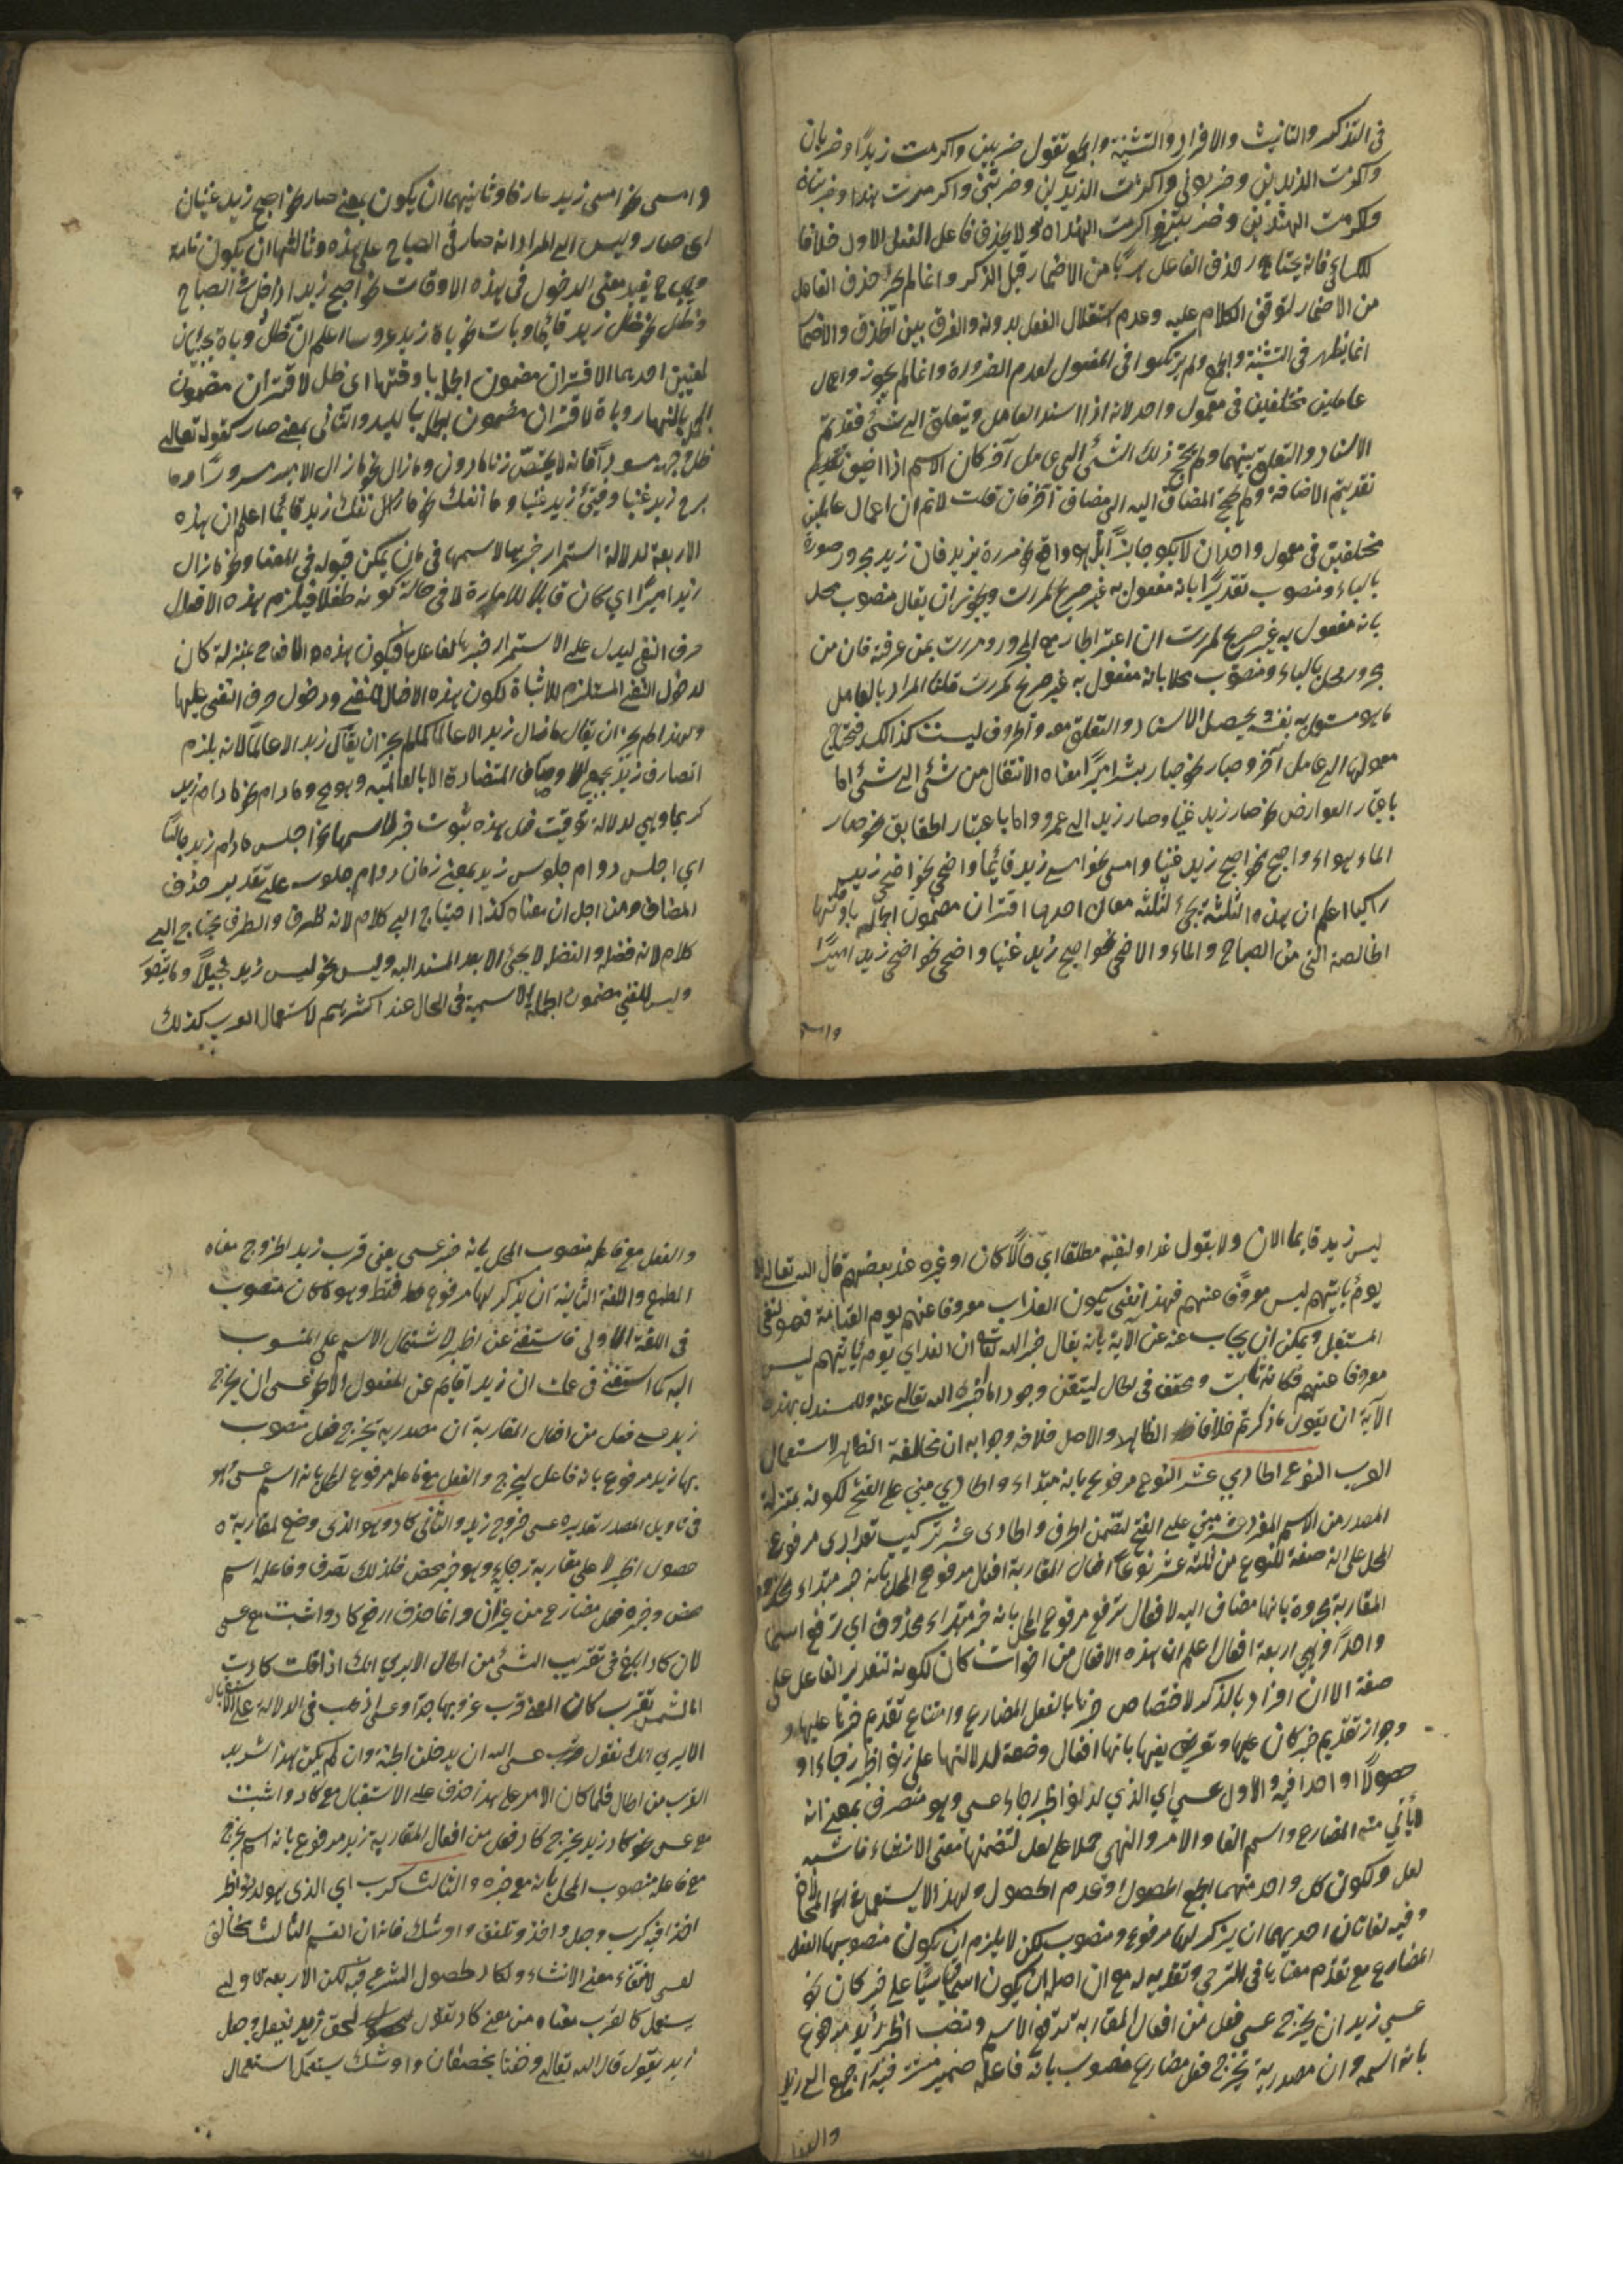 في التذكير والتانيث والافراد والتثنية والجمع تقول ضربني واكرمت زيدًا وضرباني
واكرمت الزيدين وضربوني واكرمت الزيدين وضربتني واكرمت هندا وضربتاني
واكرمت الهندين وضربنني واكرمت الهندات ولا يحذف فاعل الفعل الاول خلافا
للكسائي فانه يحذف الفاعل من الاضمار قبل الذكر وانما لم يجز حذف الفاعل
من الاضمار لتوقف الكلام عليه وعدم استقلال الفعل بدونه والفرق بين الحذف والاضمار
انما يظهر في التثنية والجمع ولم يرتكبوا في المفعول لعدم الضرورة وانما لم يجوزوا اعمال
عاملين مختلفين في معمول واحد لانه اذا اسند العامل ويتعلق الى شئ فقد تم
الاسناد والتعلق بينهما ولم يحتج ذلك الشئ الى عامل آخر كان الاسم اذا اضيف
تقديم الاضافة ولم يحتج المضاف اليه الى مضاف آخر فان قلت لا نم ان اعمال عاملين
مختلفين في معمول واحد ان لا يكون جائزا بل هو واقع نحو مررت بزيد فان زيد مجرور صورة
بالباء ومنصوب تقديرًا بانه مفعول به غير صريح لمررت ويجوز ان يقال منصوب محلا
بانه مفعول به غير صريح لمررت ان اعتبر الجار مع المجرور ومررت بمن عرفته فان من
مجرور محلا بالباء ومنصوب محلا بانه مفعول به غير صريح لمررت قلنا المراد بالعامل
ما هو مستعمل به بنفسه يحصل الاسناد والتعلق معه والحروف ليست كذلك فتحتاج
معمولها الى عامل آخر وصار نحو صار بشر اميرًا معناه الانتقال من شئ الى شئ اما
باعتبار العوارض نحو صار زيد غنيا وصار زيد الى عمرو واما باعتبار الحقايق نحو صار
الماء هواء واصبح نحو اصبح زيد غنيا وامسى نحو امسى زيد قائما واضحى نحو اضحى زيد
راكبا اعلم ان هذه الثلثة تجئ لثلثة معان احدها اقتران مضمون الجملة باوقاتها
الخالصة التي من الصباح والماء والاضحى نحو اصبح زيد غنيا واضحى نحو اضحى زيد اميرًا
وامسى
وامسى نحو امسى زيد عارفا وثانيهما ان يكون بمعنى صار نحو اصبح زيد غنيا
اى صار وليس المراد انه صار في الصباح على هذه وثالثها ان يكون تامة
وح يفيد معنى الدخول في هذه الاوقات نحو اصبح زيد اذا دخل في الصباح
وظل نحو ظل زيد قائما وبات نحو بات زيد عروسا اعلم ان ظل وبات يجيئان
لمعنيين احدهما الاقتران مضمون الجملة باوقتها اى ظل لاقتران مضمون
الجملة بالنهار وبات لاقتران مضمون الجملة بالليل والثاني بمعنى صار كقوله تعالى
ظل وجهه مسودا فانه لا يختص زمانا دون ومازال نحو مازال الامير مسرورا وما
برح زيد غنيا وفتئ زيد غنيا وما انفك نحو ما انفك زيد قائما اعلم ان هذه
الاربعة لدلالة استمرار خبرها لاسمها في زمان يمكن قبوله في المعتاد نحو مازال
زيد اميرًا اي كان قابلا للامارة لا في حالة كونه طفلا فيلزم هذه الافعال
حرف النفي ليدل على الاستمرار خبرها لفاعلها فيكون هذه الافعال بمنزلة كان
لدخول النفي المستلزم للاثبات لكون هذه الافعال للنفي ودخول حرف النفي عليها
ولهذا لم يجز ان يقال مازال زيد الا عالما كما لم يجز ان يقال كان زيد الا عالما لانه يلزم
اتصاف زيد بجميع الاوصاف المتضادة الا بالعالمية وهو مح ومادام نحو مادام زيد
كريما وهي لدلالة توقيت فعل بمدة ثبوت خبرها لاسمها نحو اجلس مادام زيد جالسًا
اي اجلس دوام جلوس زيد بمعنى زمان دوام جلوسه على تقدير حذف
المضاف ومن اجل ان معناه كذا احتياج الى كلام لانه ظرف والظرف يحتاج الى
كلام لانه فضلة والفضل لا يجئ الا بعد المسند اليه وليس نحو ليس زيد بخيلًا
وليس للنفي مضمون الجملة الاسمية في الحال عند اكثرهم لاستعمال العرب كذلك
ليس زيد قايما الان ولا يقول غدا ولنفيه مطلقا اي حالا كان او غيره عند بعضهم قال الله تعالى الا
يوم يأتيهم ليس مصروفًا عنهم فهذا نفي يكون العذاب مصروفا عنهم يوم القيامة فهو لنفي
المستقبل ويمكن ان يجاب عنه عن الآية بانه يقال خبر الله تعالى ان العذاب يوم يأتيهم ليس
مصروفا عنهم فكانه ثابت ومحقق في الحال ليتقن وجود ما اخبر الله تعالى عنه وللمستدل بهذه
الآية ان يقول ما ذكرتم خلاف الظاهر والاصل خلافه وجوابه ان مخالفة الظاهر لاستعمال
العرب النوع الحادي عشر النوع مرفوع بانه مبتداء والحادي مبني على الفتح لكونه بمنزلة
المصدر من الاسم المفرد عشر مبني على الفتح لتضمن الحرف والحادى عشر تركيب تعدادى مرفوع
المحل على انه صفة للنوع من ثلثة عشر نوعًا افعال المقاربة افعال مرفوع المحل بانه خبر مبتداء
المقاربة مجرور بانها مضاف اليه لافعال ترفع مرفوع المحل بانه خبر مبتداء محذوف اي ترفع اسما
واحدًا وهي اربعة افعال اعلم ان هذه الافعال من اخوات كان لكونه لتقدير الفاعل على
صفة الا ان افراد بالذكر لاختصاص خبرها بالفعل المضارع وامتناع تقديم خبرها عليها و
وجواز تقديم خبر كان عليها وتعريف بعضها بانها افعال وضعت لدلالتها على دنو الخبر رجاء او
حصولًا او اخذا فيه والاول عسى اي الذي لدنو الخبر رجاء عسى وهو متصرف بمعنى انه
لا يأتي منه المضارع واسم الفاعل والامر والنهي حملا على لعل لتضمنها معنى الانشاء فاشبه
لعل ولكون كل واحد منهما لطمع الحصول وعدم الحصول ولهذا لا يستعمل في المحال
وفيه لغاتان احديهما ان يذكر لها مرفوع ومنصوب لكن لا يلزم ان يكون منصوبها الفعل
المضارع مع تقدم مقاربا في الترجي وتقديره مع ان اصله ان يكون اسما قياسًا على خبر كان نحو
عسى زيد ان يخرج عسى فعل من افعال المقاربة ترفع الاسم وتنصب الخبر زيد مرفوع
بانه اسمه وان مصدرية يخرج فعل مضارع منصوب بانه فاعله ضمير مستتر فيه راجع الى زيد
والفعل
والفعل مع فاعله منصوب المحل بانه خبر عسى يعني قرب زيد الخروج معناه
الطمع واللغة الثانية ان يذكر لها مرفوع فقط وهو ما كان منصوب
في اللغة الاولى فاستغنى عن الخبر لاشتمال الاسم على المنسوب
اليه كما استغنى في علمت ان زيدا قايم عن المفعول الاخر عسى ان يخرج
زيد عسى فعل من افعال المقاربة ان مصدرية يخرج فعل منصوب
بها زيد مرفوع بانه فاعل ليخرج والفعل مع فاعله مرفوع المحل بانه اسم عسى وهو
في تاويل المصدر تقديره عسى خروج زيد والثاني كاد وهو الذى وضع لمقاربة
حصول الخبر لا على مقاربة رجايه وهو خبر محض فلذلك تصرف وفاعله اسم
محض وخبره فعل مضارع من غير ان وانما حذف ان مع كاد واثبت مع عسى
لان كاد ابلغ في تقريب الشئ من الحال الا يرى انك اذا قلت كادت
الشمس تغرب كان المعنى قرب غروبها جدًا وعسى اذهب في الدلالة على الاستقبال
الا يرى انك تقول عسى الله ان يدخلني الجنة وان لم يكن هذا شديد
القرب من الحال فلما كان الامر على هذا حذف على الاستقبال مع كاد واثبت
مع عسى نحو كاد زيد يخرج كاد فعل من افعال المقاربة زيد مرفوع بانه اسم يخرج
مع فاعله منصوب المحل بانه مع خبره والثالث كرب اي الذى هو لدنو الخبر
اخذا فيه كرب وجعل واخذ وطفق واوشك فانه ان القسم الثالث يخالف
لعسى لانتفاء معنى الانشاء ولكاد لحصول الشرع فيه لكن الاربعة الاولى
يستعمل كاد لقرب معناه من معنى كاد تقول طفق زيد يفعل وجعل
زيد يقول قال الله تعالى وطفقا يخصفان واوشك يستعمل استعمال